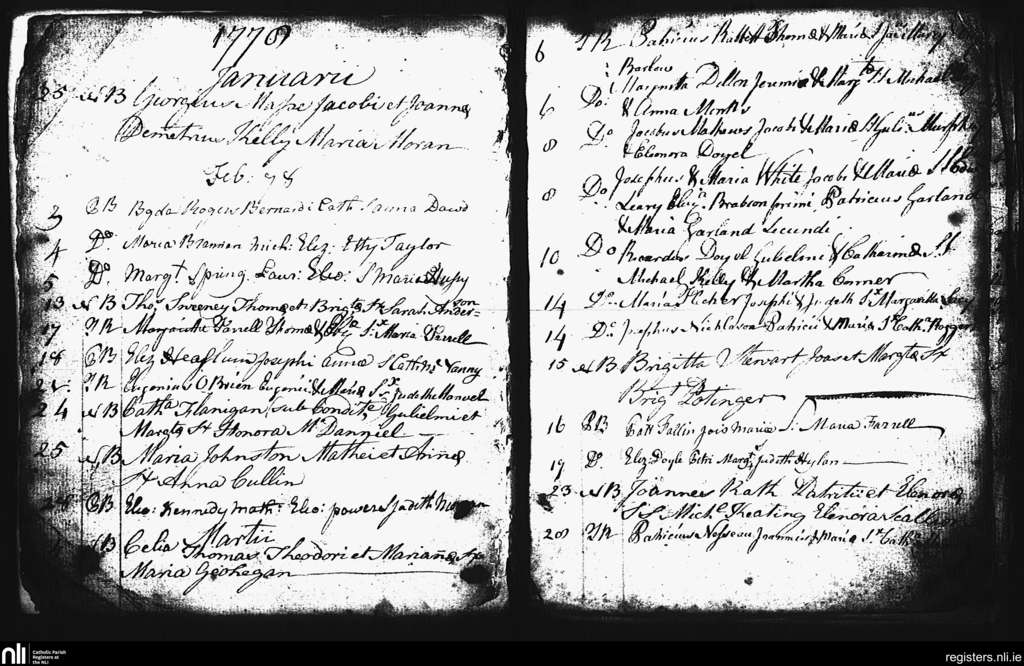 1778
Januarii
25 NB Georgius Masse Jacobi et Joannæ
Demetrius Kelly Maria Moran
Feb: 78
3 PB Bgda Rogers Bernardi: Cath: Sanna Dawd
4 Do. Maria Brannan Mich: Eliz: Etty Taylor
5 Do. Margt. Spring Laur: Elo: S Maria Husy
13 NB Thos. Sweeney Thom et Brigtæ Ss Sarah Anderson
17 TR Margaritta Farrell Thomæ & Ss. Maria Farrell
18 PB Eliz Joseph Anna S Cath: Nanny
TR Eugenius O Brien Eugenii & Maria Ss. Judith Mansel
24 NB Catha. Flanigan, Sub Conditne Gulielmi et
Margtæ Ss Honora Mc Danniel
25 NB Maria Johnston Mathei et Annæ
Ss Anna Cullin
28 PB Eleo: Kennedy Math: Eleo: powers Judith
Martii
NB Celia Thomas Theodori et Marianæ Ss
Maria Geohegan
6 TR Patricius Thomæ & Maria Mary
Barlow
6 Do: Margarita Dillon Jeremiæ & Margt. Ss Michael
& Anna Monks
8 Do. Jacobus Mathews Jacobi & Mariæ Ss Gulimus Murphy
& Elenora Doyel
8 Do Josephus & Maria White Jacobi & Mariæ Ss
Leary Eliz: Brabson primi Patricius Garland
& Maria Garland Secundi
10 Do Ricardus Doyel Gulielmi & Catharinæ Ss
Michael Kelly & Martha Connor
14 Do: Maria Josephi & Judith Ss. Margaritta
14 Do. Josephus Nicholason Patricii & Maria Ss. Catha.
15 NB Brigitta Stewart Joas et Margtæ Ss
Brigt Potinger
16 PB Cath Fallin Jois Mariæ S: Maria Farrell
19 Do. Eliz: Doyle Petri Margt. Judith Hylan
23 NB Joannes Rath Patritii et Elenoræ
Ss Michl Keating Elenora Scallion
28 TR Patricius Joannis & Maria Ss. Cath
nli Catholic Parish
Registers at
the NLI
registers.nli.ie